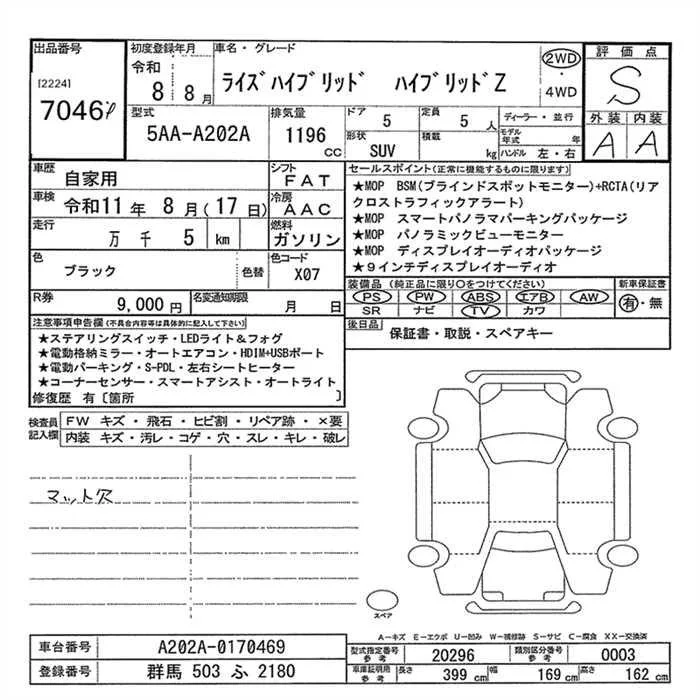 出品番号
[2224]
7046
初度登録年月
令和
8 8月
車名・グレード
ライズハイブリッド ハイブリッドZ
2WD
・
4WD
評価点
S
外装 内装
A A
型式
5AA-A202A
排気量
1196
CC
ドア
5
定員
5 人
形状
SUV
積載
kg
ディーラー・並行
モデル年式 年
ハンドル 左・右
車歴
自家用
シフト
FAT
車検
令和11年 8月(17日)
冷房
AAC
走行
万 千 5 km
燃料
ガソリン
色
ブラック
色替
色コード
X07
R券
9,000 円
名変通知期限
月 日
セールスポイント(正常に機能するものに限ります)
★MOP BSM(ブラインドスポットモニター)+RCTA(リア
クロストラフィックアラート)
★MOP スマートパノラマパーキングパッケージ
★MOP パノラミックビューモニター
★MOP ディスプレイオーディオパッケージ
★9インチディスプレイオーディオ
装備品(純正品に限り○をつけてください)
PS PW ABS エアB AW
SR ナビ TV カワ
新車保証書
有・無
後日品
保証書・取説・スペアキー
注意事項申告欄(不具合内容等は具体的に記入して下さい)
★ステアリングスイッチ・LEDライト&フォグ
★電動格納ミラー・オートエアコン・HDIM+USBポート
★電動パーキング・S-PDL・左右シートヒーター
★コーナーセンサー・スマートアシスト・オートライト
修復歴 有〔箇所 〕
検査員
記入欄
FW キズ・飛石・ヒビ割・リペア跡・×要
内装 キズ・汚レ・コゲ・穴・スレ・キレ・破レ
マット欠
スペア
A-キズ E-エクボ U-凹み W-補修跡 S-サビ C-腐食 XX-交換済
車台番号
A202A-0170469
登録番号
群馬 503 ふ 2180
型式指定番号
参考
20296
類別区分番号
参考
0003
車庫証明用
参考
長さ 399cm 幅 169cm 高さ 162cm